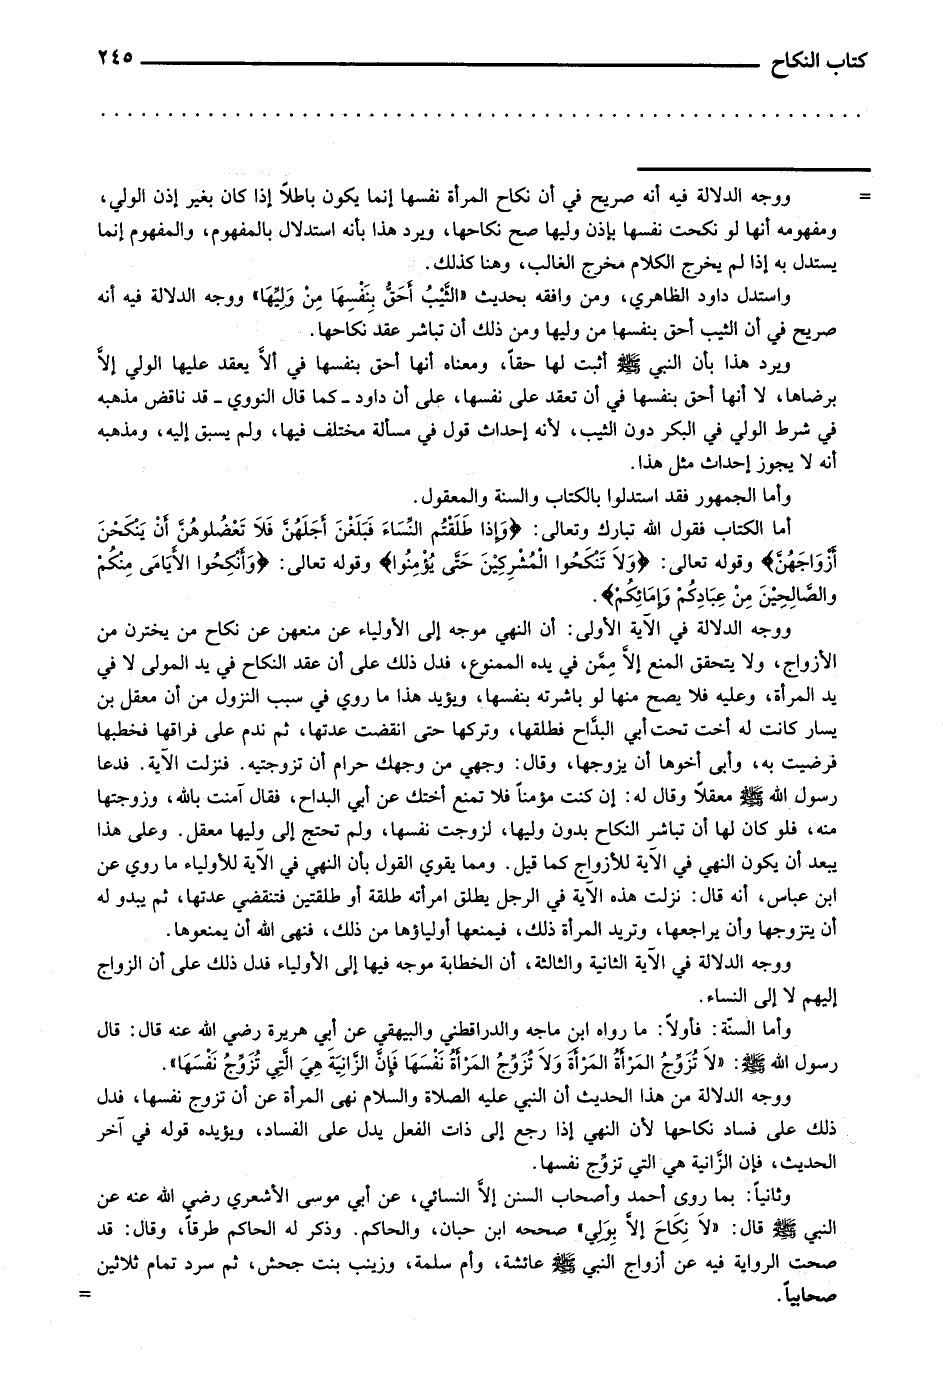 كتاب النكاح ٢٤٥
= ووجه الدلالة فيه أنه صريح في أن نكاح المرأة نفسها إنما يكون باطلاً إذا كان بغير إذن الولي،
ومفهومه أنها لو نكحت نفسها بإذن وليها صح نكاحها، ويرد هذا بأنه استدلال بالمفهوم، والمفهوم إنما
يستدل به إذا لم يخرج الكلام مخرج الغالب، وهنا كذلك.
واستدل داود الظاهري، ومن وافقه بحديث «الثَّيِّبُ أَحَقُّ بِنَفْسِهَا مِنْ وَلِيِّهَا» ووجه الدلالة فيه أنه
صريح في أن الثيب أحق بنفسها من وليها ومن ذلك أن تباشر عقد نكاحها.
ويرد هذا بأن النبي ﷺ أثبت لها حقاً، ومعناه أنها أحق بنفسها في ألاَّ يعقد عليها الولي إلاَّ
برضاها، لا أنها أحق بنفسها في أن تعقد على نفسها، على أن داود ـ كما قال النووي ـ قد ناقض مذهبه
في شرط الولي في البكر دون الثيب، لأنه إحداث قول في مسألة مختلف فيها، ولم يسبق إليه، ومذهبه
أنه لا يجوز إحداث مثل هذا.
وأما الجمهور فقد استدلوا بالكتاب والسنة والمعقول.
أما الكتاب فقول الله تبارك وتعالى: ﴿وَإِذَا طَلَقْتُم النِّسَاءَ فَبَلَغْنَ أَجَلَهُنَّ فَلَا تَعْضُلوهُنَّ أَنْ يَنْكَحْنَ
أَزْوَاجَهُنَّ﴾ وقوله تعالى: ﴿وَلاَ تَنْكَحُوا الْمُشْرِكِيْنَ حَتَّى يُؤْمِنُوا﴾ وقوله تعالى: ﴿وَأَنْكِحُوا الأَيَامَى مِنْكُمْ
والصَّالِحِيْنَ مِنْ عِبَادِكُمْ وَإِمَائِكُمْ﴾.
ووجه الدلالة في الآية الأولى: أن النهي موجه إلى الأولياء عن منعهن عن نكاح من يخترن من
الأزواج، ولا يتحقق المنع إلاَّ مِمَّن في يده الممنوع، فدل ذلك على أن عقد النكاح في يد المولى لا في
يد المرأة، وعليه فلا يصح منها لو باشرته بنفسها، ويؤيد هذا ما روي في سبب النزول من أن معقل بن
يسار كانت له أخت تحت أبي البدَّاح فطلقها، وتركها حتى انقضت عدتها، ثم ندم على فراقها فخطبها
فرضيت به، وأبى أخوها أن يزوجها، وقال: وجهي من وجهك حرام أن تزوجتيه. فنزلت الآية. فدعا
رسول الله ﷺ معقلاً وقال له: إن كنت مؤمناً فلا تمنع أختك عن أبي البداح، فقال آمنت بالله، وزوجتها
منه، فلو كان لها أن تباشر النكاح بدون وليها، لزوجت نفسها، ولم تحتج إلى وليها معقل. وعلى هذا
يبعد أن يكون النهي في الآية للأزواج كما قيل. ومما يقوي القول بأن النهي في الآية للأولياء ما روي عن
ابن عباس، أنه قال: نزلت هذه الآية في الرجل يطلق امرأته طلقة أو طلقتين فتنقضي عدتها، ثم يبدو له
أن يتزوجها وأن يراجعها، وتريد المرأة ذلك، فيمنعها أولياؤها من ذلك، فنهى الله أن يمنعوها.
ووجه الدلالة في الآية الثانية والثالثة، أن الخطابة موجه فيها إلى الأولياء فدل ذلك على أن الزواج
إليهم لا إلى النساء.
وأما السنّة: فأولاً: ما رواه ابن ماجه والدراقطني والبيهقي عن أبي هريرة رضي الله عنه قال: قال
رسول الله ﷺ: «لاَ تُزَوِّجُ المَرْأَةُ المَرْأَةَ وَلاَ تُزَوِّجُ المَرْأَةُ نَفْسَهَا فَإِنَّ الزَّانِيَةَ هِيَ الَّتِي تُزَوِّجُ نَفْسَهَا».
ووجه الدلالة من هذا الحديث أن النبي عليه الصلاة والسلام نهى المرأة عن أن تزوج نفسها، فدل
ذلك على فساد نكاحها لأن النهي إذا رجع إلى ذات الفعل يدل على الفساد، ويؤيده قوله في آخر
الحديث، فإن الزَّانية هي التي تزوِّج نفسها.
وثانياً: بما روى أحمد وأصحاب السنن إلاَّ النسائي، عن أبي موسى الأشعري رضي الله عنه عن
النبي ﷺ قال: «لاَ نِكَاحَ إِلاَّ بِوَلِي» صححه ابن حبان، والحاكم. وذكر له الحاكم طرقاً، وقال: قد
صحت الرواية فيه عن أزواج النبي ﷺ عائشة، وأم سلمة، وزينب بنت جحش، ثم سرد تمام ثلاثين
صحابياً. =